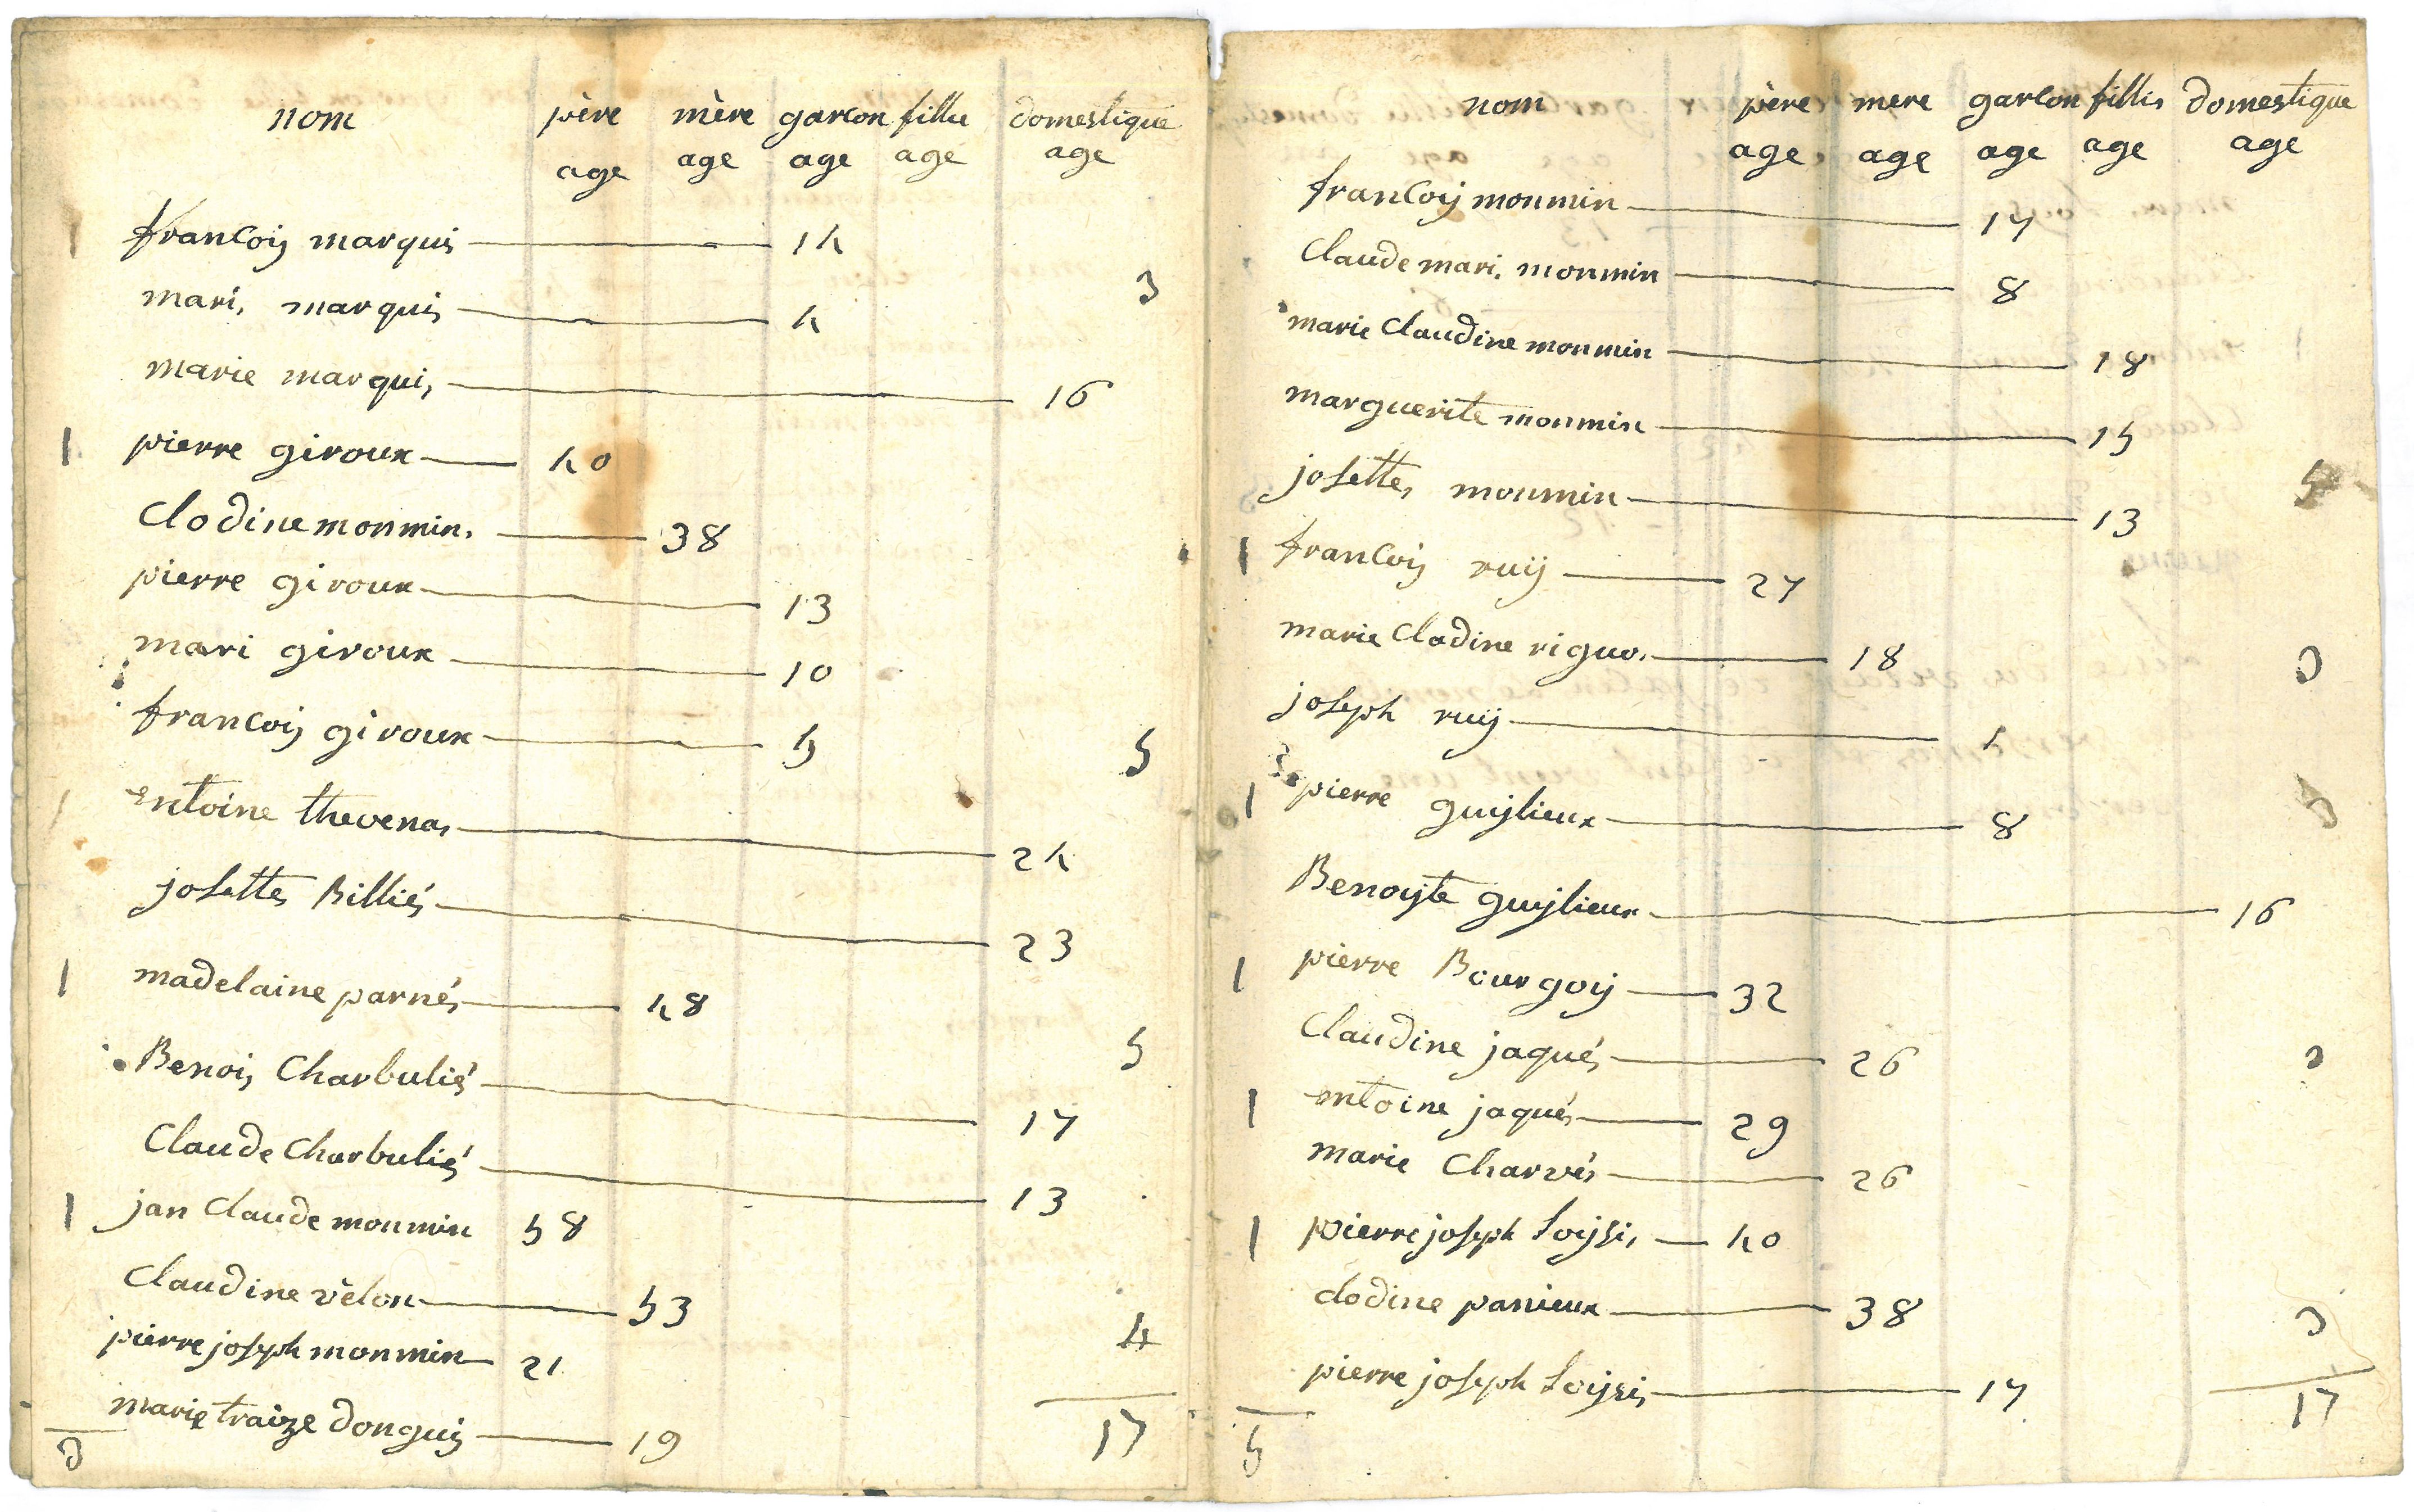 nom père mère garcon fille domestique
age age age age age
1 francois marquis 14
3
mari, marquis 4
marie marquis 16
1 pierre giroux 40
Clodine monmin, 38
pierre giroux 13
mari giroux 10
francois giroux 5
5
entoine thevenas 24
josette, Billiés 23
1 madelaine parnés 48
5
Benois Charbuliés 17
Claude Charbuliés 13
1 jan Claude monmin 58
Claudine vèlon 53
4
pierre joseph monmin 21
marie traize donguis 19
3 17
nom père mere garcon filles domestique
age age age age age
francois monmin 17
Claude mari, monmin 8
marie Claudine monmin 18
marguerite monmin 15
5
josette, monmin 13
1 francois ruij 27
marie Clodine riguo, 18
3
joseph ruij 1
1 pierre guijlieux 8
Benoijte guijlieux 16
1 pierre Bourgois 32
Claudine jaqués 26
1 entoine jaqués 29
marie Charvés 26
1 pierre joseph Loijsi, 40
clodine panieux 38
3
pierre joseph Loijsi, 17
5 17